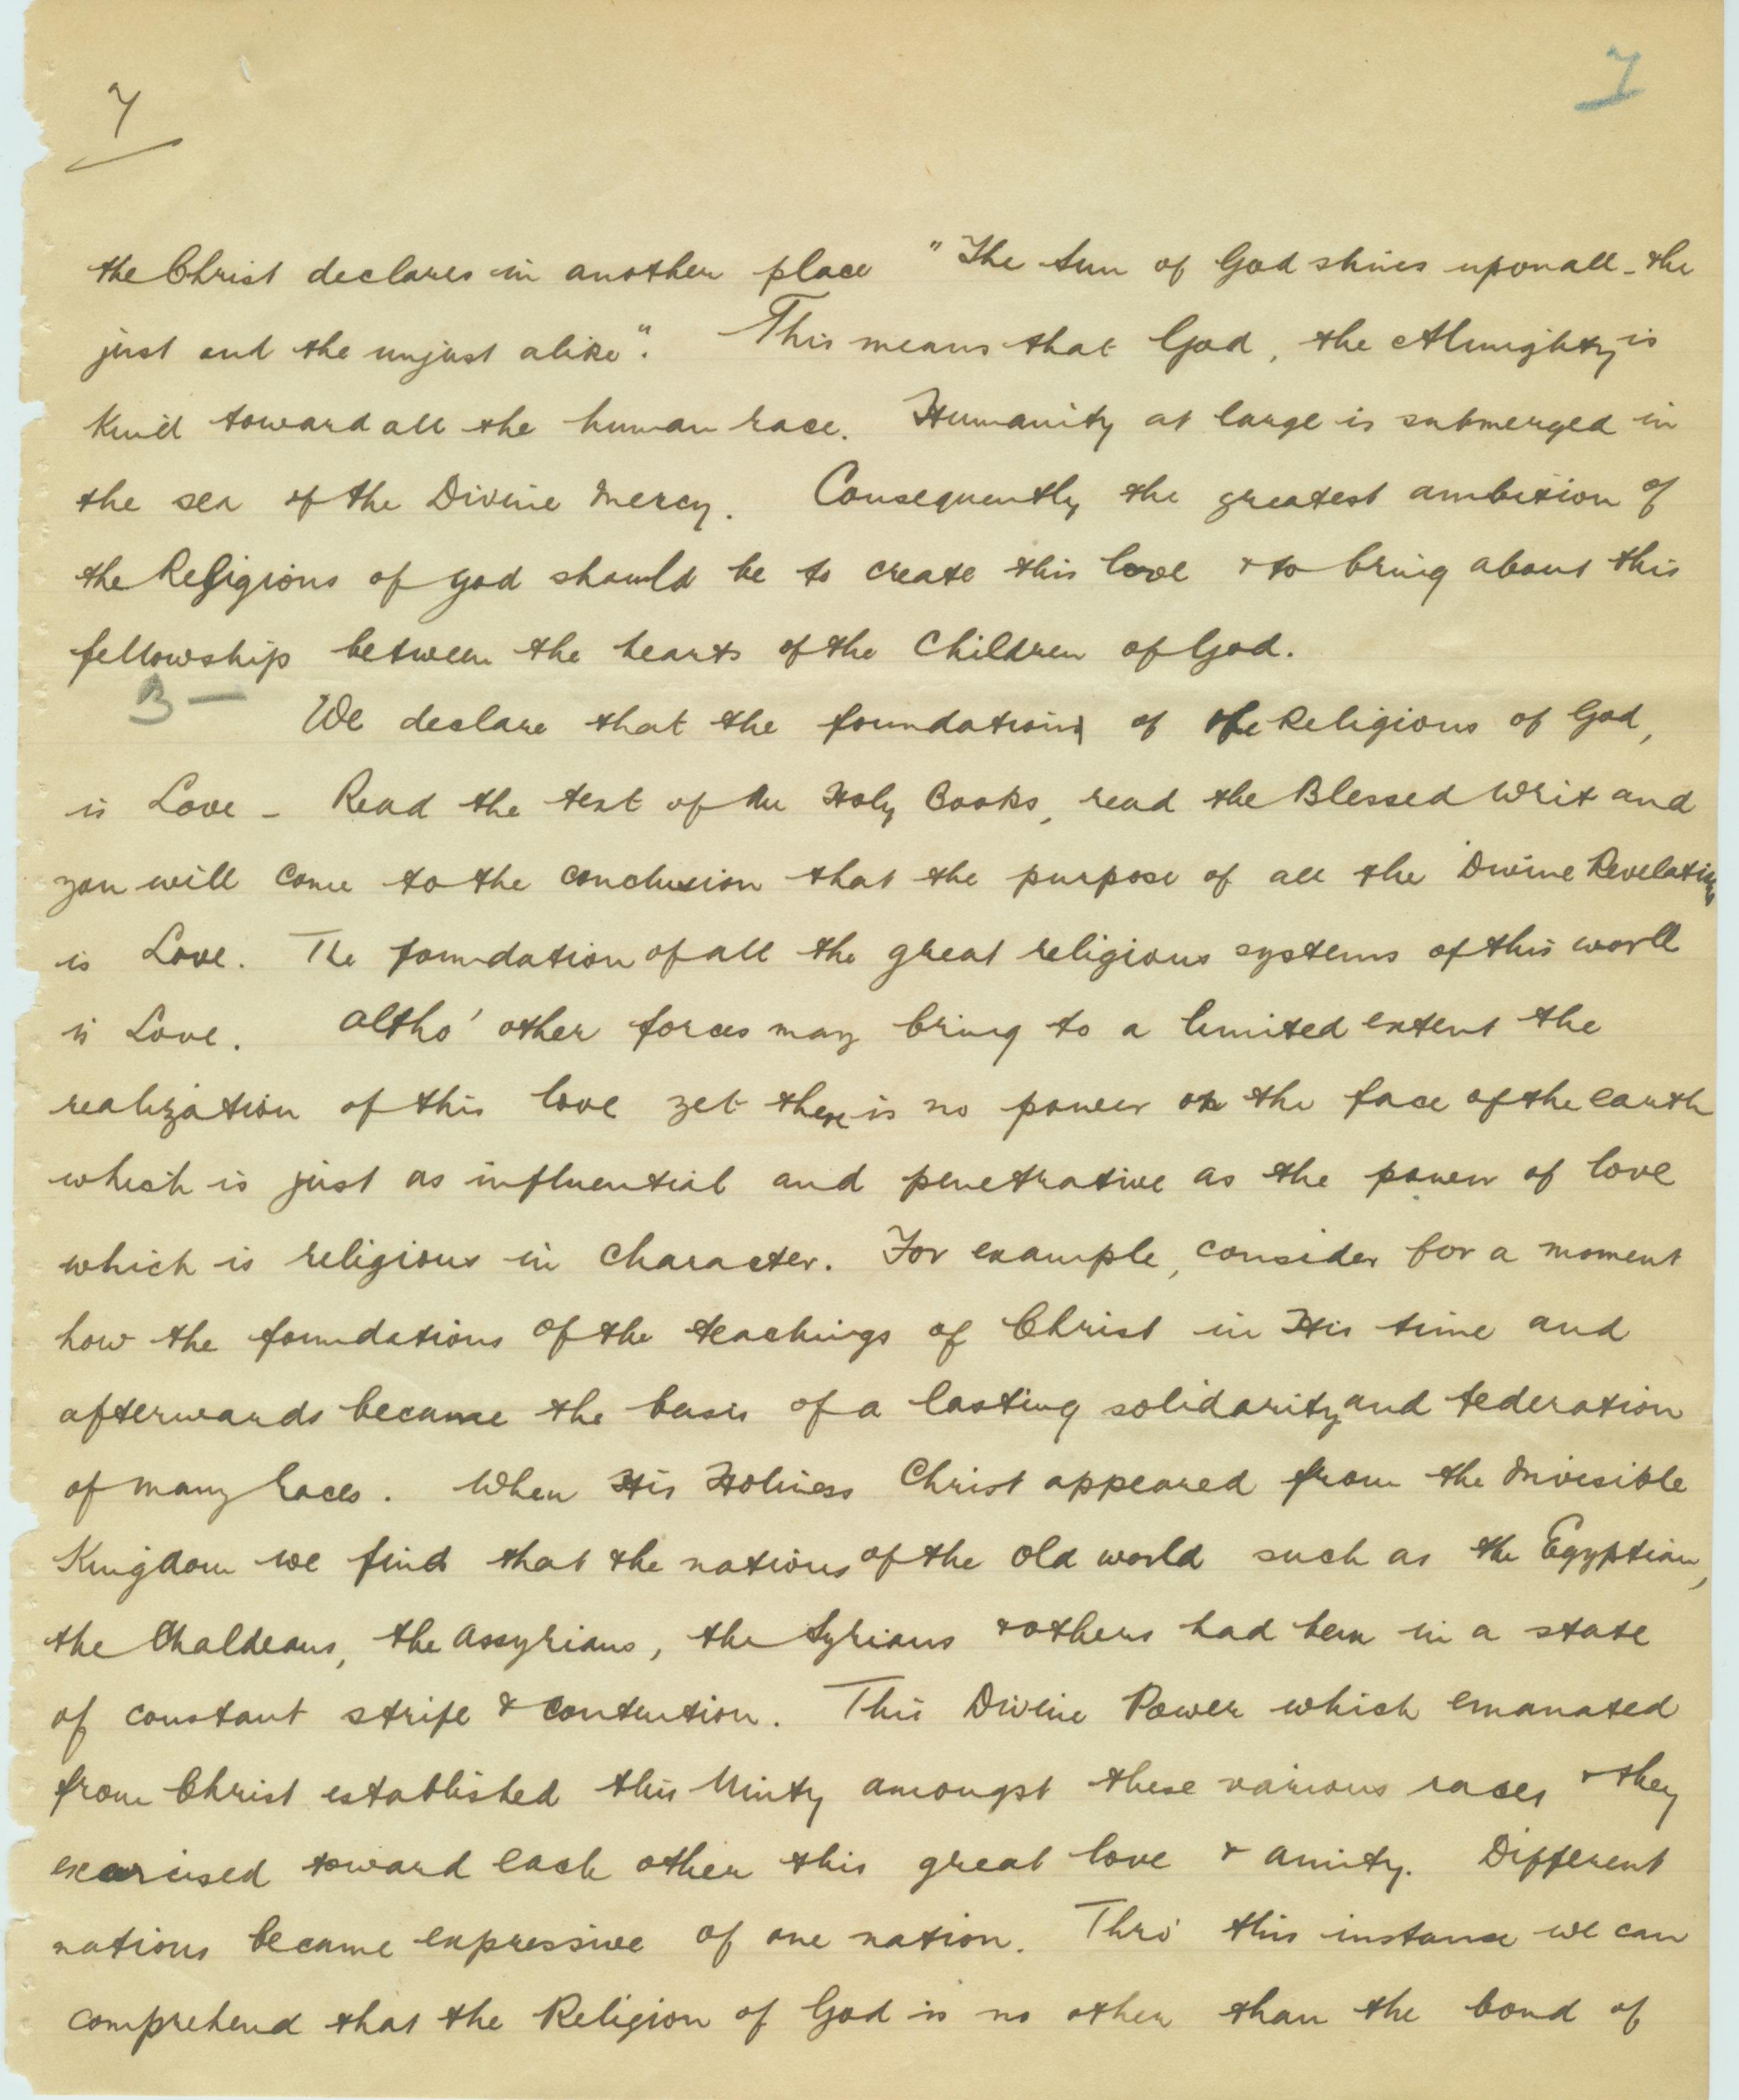 7
7
the Christ declares in another place "The Sun of God shines upon all - the
just and the unjust alike". This means that God, the Almighty is
kind toward all the human race. Humanity at large is submerged in
the sea of the Divine Mercy. Consequently the greatest ambition of
the Religions of God should be to create this love & to bring about this
fellowship between the hearts of the Children of God.
B -
We declare that the foundation of the Religions of God,
is Love - Read the text of the Holy Books, read the Blessed Writ and
you will come to the conclusion that the purpose of all the Divine Revelations
is Love. The foundation of all the great religious systems of this world
is Love. Altho' other forces may bring to a limited extent the
realization of this love yet there is no power on the face of the earth
which is just as influential and penetrative as the power of love
which is religious in character. For example, consider for a moment
how the foundations of the teachings of Christ in His time and
afterwards became the basis of a lasting solidarity and federation
of many races. When His Holiness Christ appeared from the Invisible
Kingdom we find that the nations of the old world such as the Egyptian,
the Chaldeans, the Assyrians, the Syrians & others had been in a state
of constant strife & contention. This Divine Power which emanated
from Christ established this Unity amongst these various races & they
exercised toward each other this great love & amity. Different
nations became expressive of one nation. Thro' this instance we can
comprehend that the Religion of God is no other than the bond of